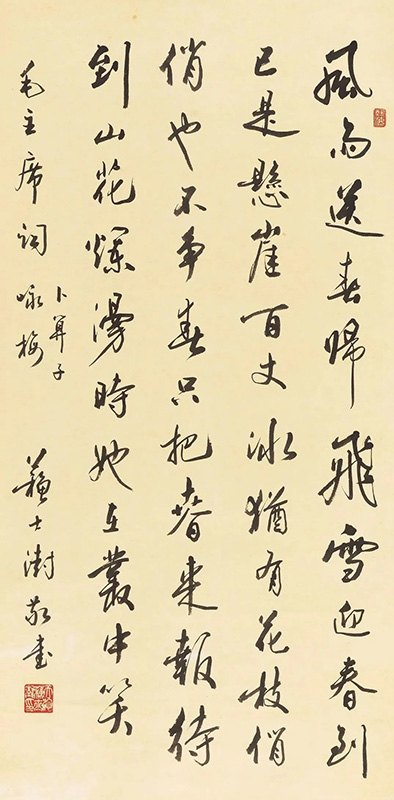 風雨送春歸飛雪迎春到
已是懸崖百丈冰猶有花枝俏
俏也不争春只把春来報待
到山花爛漫時她在叢中笑
毛主席詞
卜算子
咏梅
蘇士澍敬書